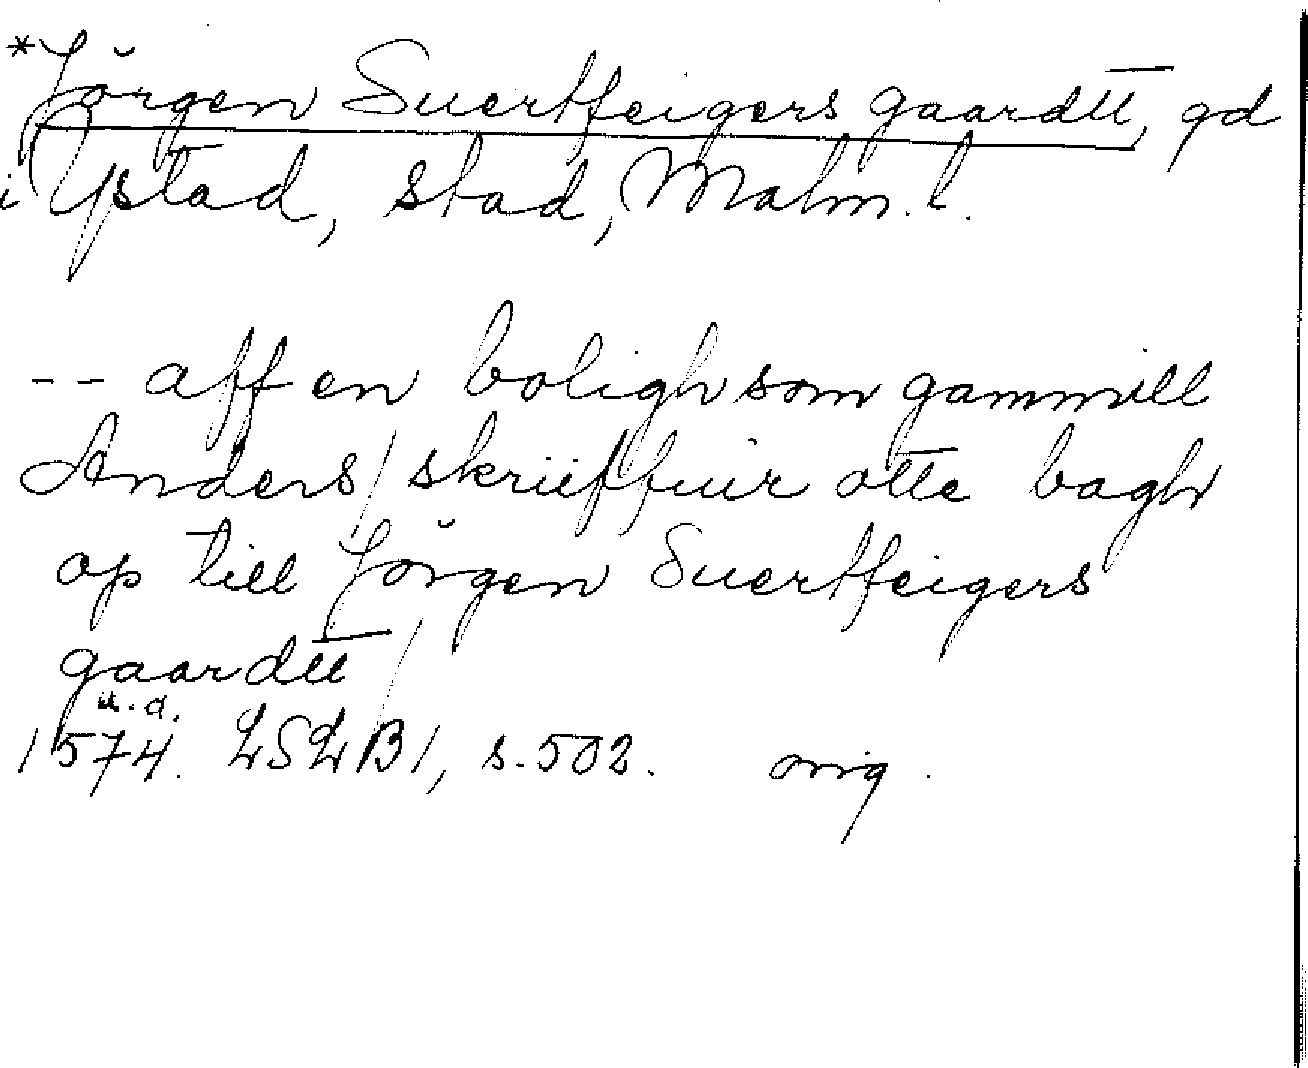 *Jörgen Suertfeigers gaardtt, gd
i Ystad, stad, Malm. l.
-- aff en boligh som gammill
Anders / skrüffuir otte bagh
op till Jörgen Suertfeigers
gaardtt /
u.d.
1574. LSLB1, s. 502. orig.